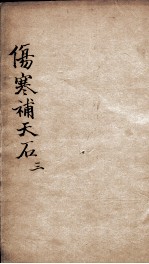 傷寒補天石
三